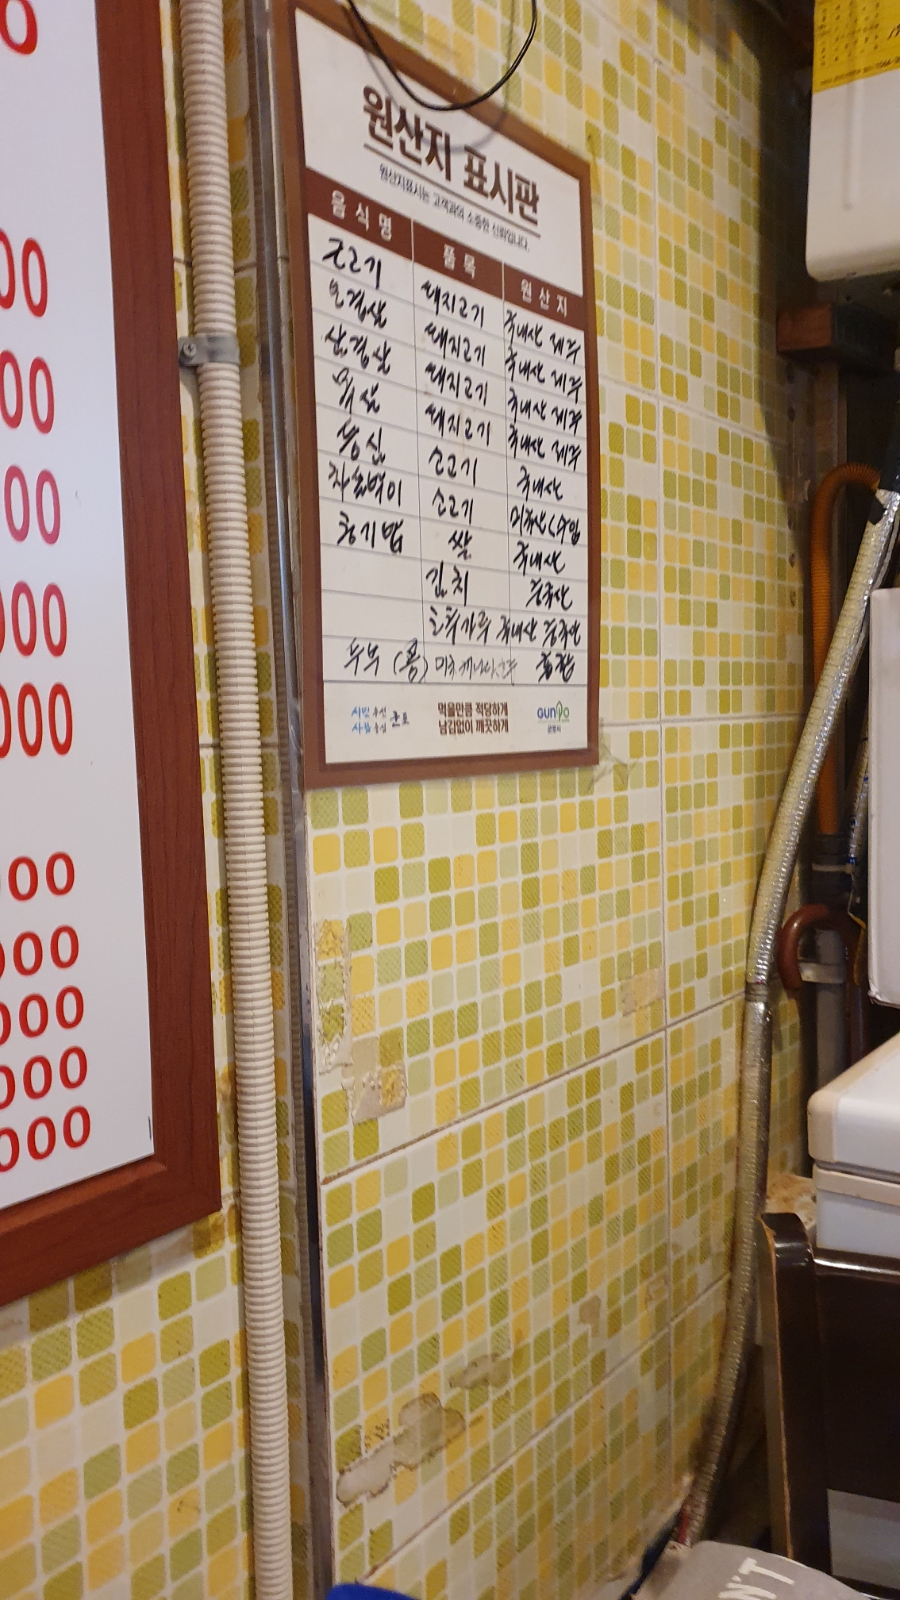 원산지 표시판
원산지표시는 고객과의 소중한 신뢰입니다.
음식명 품목 원산지
근고기 돼지고기 국내산 제주
오겹살 돼지고기 국내산 제주
삼겹살 돼지고기 국내산 제주
목살 돼지고기 국내산 제주
등심 소고기 국내산
차돌박이 소고기 미국산(수입
공기밥 쌀 국내산
김치 중국산
고춧가루 국내산 중국산
두부 (콩) 미국 캐나다 호주 혼합
시민우선 사람중심 군포
먹을만큼 적당하게
남김없이 깨끗하게
GunPo
군포시
0
00
00
00
000
000
000
000
000
000
000
N'T